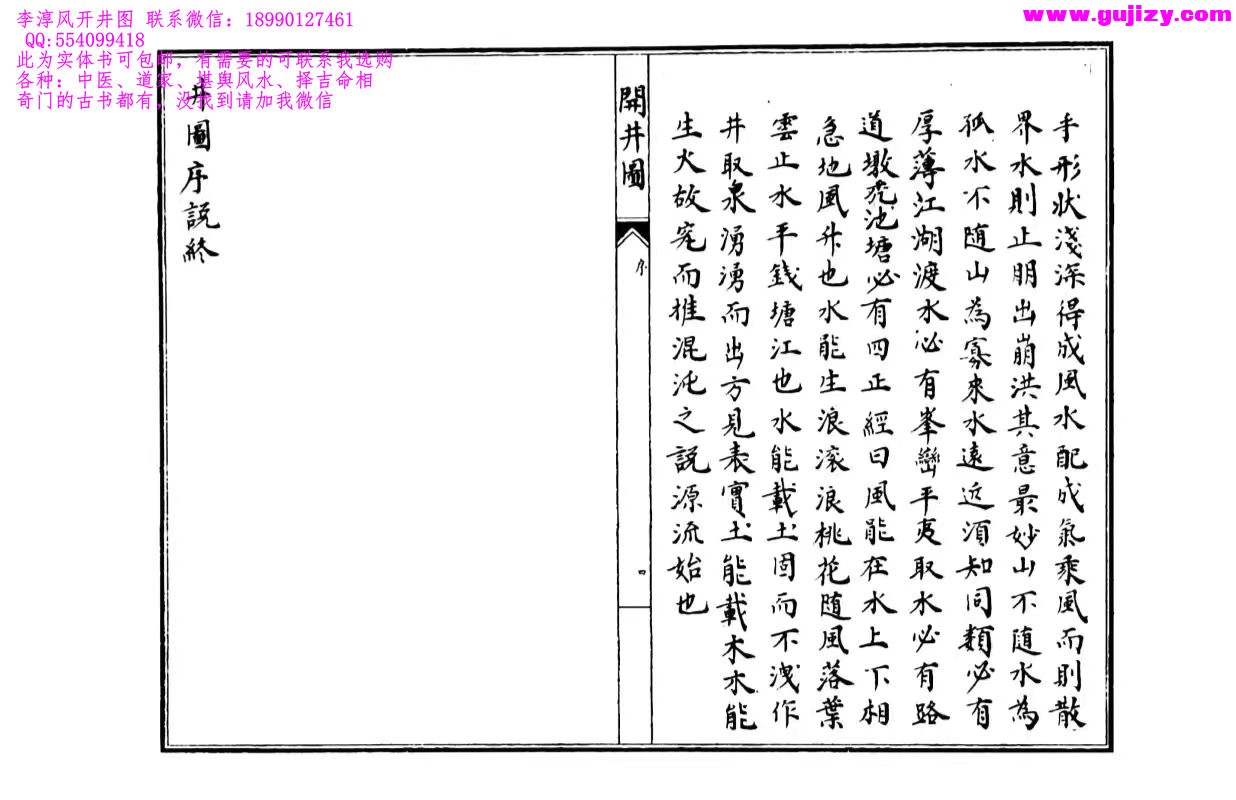 李淳风开井图 联系微信：18990127461
QQ:554099418
此为实体书可包邮，有需要的可联系我选购
各种：中医、道家、堪舆风水、择吉命相
奇门的古书都有，没找到请加我微信
www.gujizy.com
乎形狀淺深得成風水配成氣乘風而則散
界水則止明出崩洪其意最妙山不隨水為
孤水不随山為寡來水遠近須知同類必有
厚薄江湖渡水必有峯巒平夷取水必有路
道墩凴池塘必有四正經曰風能在水上下相
急地風升也水能生浪滚浪桃花随風落葉
雲止水平錢塘江也水能載土固而不洩作
井取泉湧湧而出方見表實土能載木木能
生火故究而推混沌之説源流始也
開井圖
序
四
井圖序説終